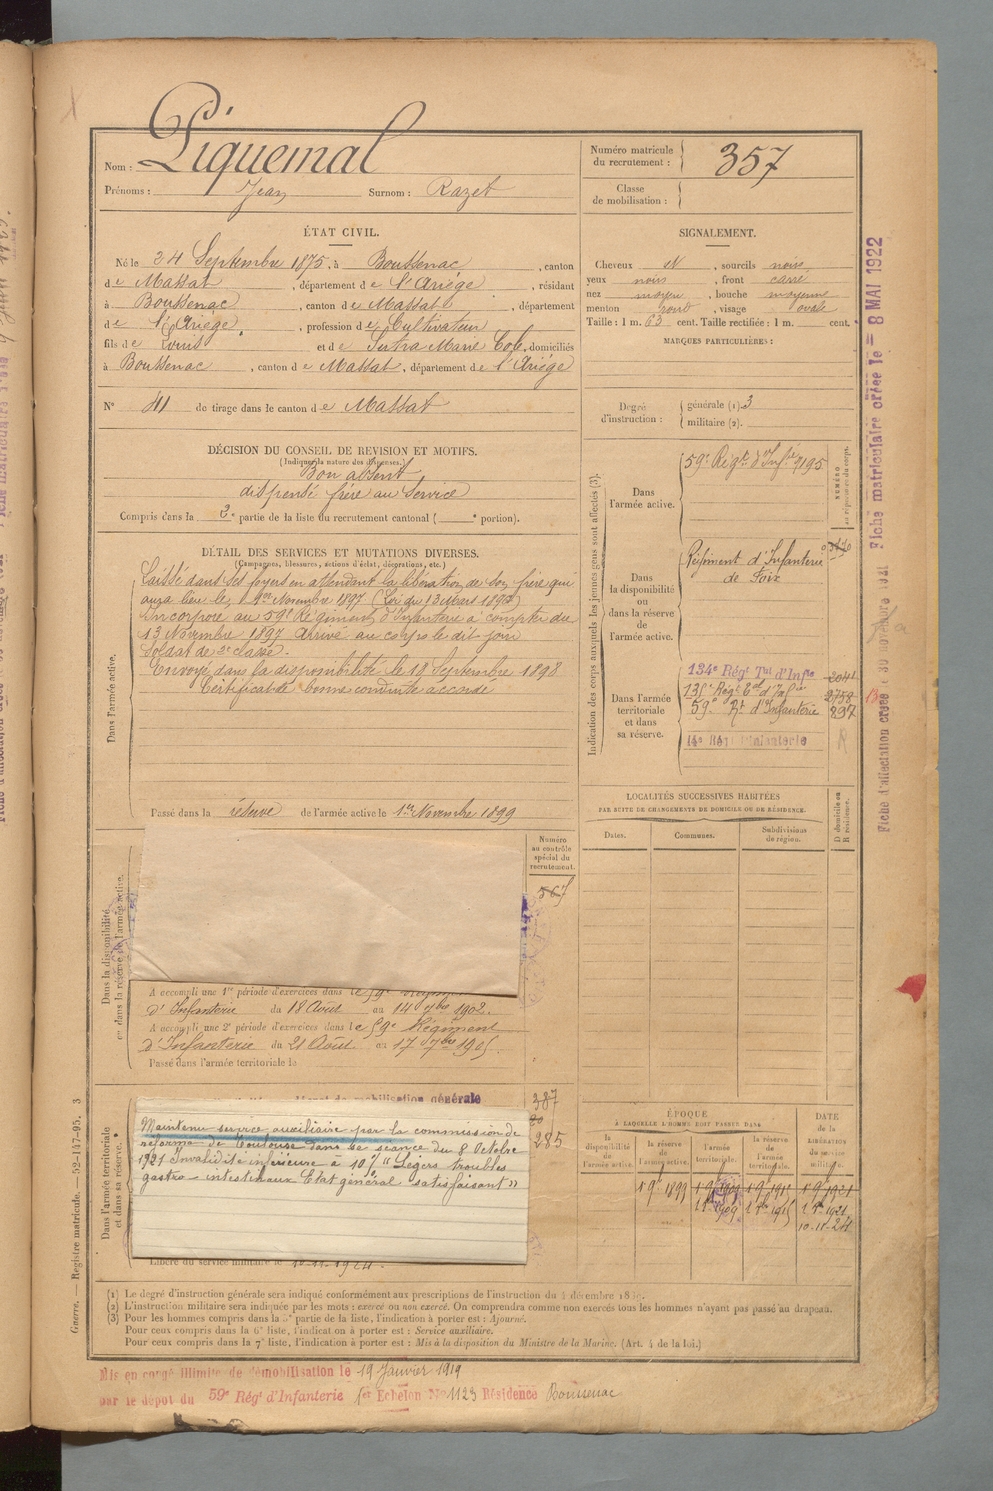 Nom : Piquemal
Prénoms : Jean Surnom : Razet
Numéro matricule
du recrutement : 357
Classe
de mobilisation :
ÉTAT CIVIL.
Né le 24 Septembre 1875, à Boussenac, canton
de Massat, département de l'Ariège, résidant
à Boussenac, canton de Massat, département
de l'Ariège, profession de Cultivateur
fils de Louis et de Sutra Marie Cole, domiciliés
à Boussenac, canton de Massat, département de l'Ariège
N° 41 de tirage dans le canton de Massat
SIGNALEMENT.
Cheveux N, sourcils noirs,
yeux noirs, front carré
nez moyen, bouche moyenne
menton rond, visage ovale
Taille : 1 m. 63 cent. Taille rectifiée : 1 m. cent.
MARQUES PARTICULIÈRES :
Degré
d'instruction :
générale (1). 3
militaire (2).
DÉCISION DU CONSEIL DE REVISION ET MOTIFS.
(Indiquer la nature des dispenses.)
Bon absent
dispensé frère au Service
Compris dans la 2e partie de la liste du recrutement cantonal ( e portion).
DÉTAIL DES SERVICES ET MUTATIONS DIVERSES.
(Campagnes, blessures, actions d'éclat, décorations, etc.)
Dans l'armée active.
Laissé dans ses foyers en attendant la libération de son frère qui
aura lieu le 1er Novembre 1897 (Loi du 13 Mars 1896)
Incorporé au 59e Régiment d'Infanterie à compter du
13 Novembre 1897 Arrivé au corps le dit jour
Soldat de 2e classe.
Envoyé dans la disponibilité le 18 Septembre 1898
Certificat de bonne conduite accordé
Passé dans la réserve de l'armée active le 1er Novembre 1899
Indication des corps auxquels les jeunes gens sont affectés (3).
NUMÉRO
au répertoire du corps.
Dans
l'armée active.
59e Régt d'Infie 9195
Dans
la disponibilité
ou
dans la réserve
de
l'armée active.
Régiment d'Infanterie
de Foix
Dans l'armée
territoriale
et dans
sa réserve.
134e Régt Tal d'Infie
135e Régt Tal d'Infie 2759
59e Rt d'Infanterie 297
14e Régt d'Infanterie
R
LOCALITÉS SUCCESSIVES HABITÉES
PAR SUITE DE CHANGEMENTS DE DOMICILE OU DE RÉSIDENCE.
Dates. Communes. Subdivisions
de région.
D domicile ou
R résidence.
Numéro
au contrôle
spécial du
recrutement.
567
Dans la disponibilité
ou dans la réserve de l'armée active.
A accompli une 1re période d'exercices dans le 59e
d'Infanterie du 18 Août au 14 7bre 1902.
A accompli une 2e période d'exercices dans le 59e Régiment
d'Infanterie du 21 Août au 17 7bre 1905.
Passé dans l'armée territoriale le
Dans l'armée territoriale
et dans sa réserve.
mobilisation générale
387
285
Maintenu service auxiliaire par la commission de
réforme de Toulouse dans sa séance du 8 Octobre
1921 Invalidité inférieure à 10 % " Légers troubles
gastro-intestinaux Etat général satisfaisant "
Libéré du service militaire le 10-11-1924.
ÉPOQUE
À LAQUELLE L'HOMME DOIT PASSER DANS
DATE
DE LA
LIBÉRATION
du service
militaire.
la
disponibilité
de
l'armée active.
la réserve
de
l'armée active.
l'armée
territoriale.
la réserve
de
l'armée
territoriale.
1 9e 1899 1 9e 1909 1 9e 1915 1 9 1921
1909 1 9e 1915 1921
10-11-24
(1) Le degré d'instruction générale sera indiqué conformément aux prescriptions de l'instruction du 4 décembre 1889.
(2) L'instruction militaire sera indiquée par les mots : exercé ou non exercé. On comprendra comme non exercés tous les hommes n'ayant pas passé au drapeau.
(3) Pour les hommes compris dans la 5e partie de la liste, l'indication à porter est : Ajourné.
Pour ceux compris dans la 6e liste, l'indication à porter est : Service auxiliaire.
Pour ceux compris dans la 7e liste, l'indication à porter est : Mis à la disposition du Ministre de la Marine. (Art. 4 de la loi.)
Mis en congé illimité de démobilisation le 19 Janvier 1919
par le dépôt du 59e Régt d'Infanterie 1er Echelon No 1123 Résidence Boussenac
Guerre. — Registre matricule. — 52-147-95. 3
Fiche matriculaire créée le = 8 MAI 1922
Fiche d'affectation créée le 30 novembre 1921